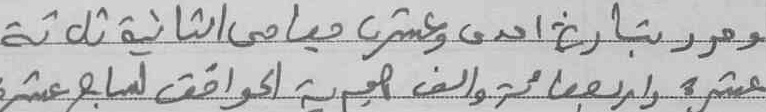 وحرر بتاريخ احدى وعشرين جمادى الثانية ثلاثة
عشرة واربعمائة والف هجرية الموافق لسابع عشرة